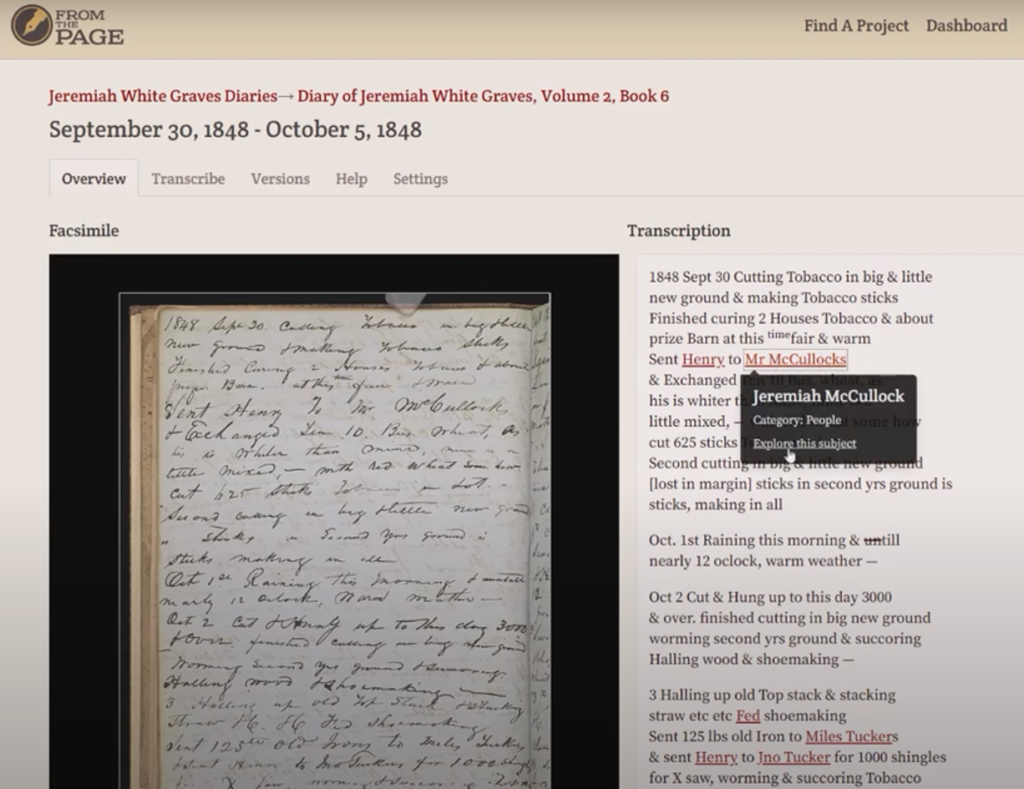 FROM
THE
PAGE
Find A Project Dashboard
Jeremiah White Graves Diaries→ Diary of Jeremiah White Graves, Volume 2, Book 6
September 30, 1848 - October 5, 1848
Overview Transcribe Versions Help Settings
Facsimile
1848 Sept 30. Cutting Tobacco in big & little
new ground & making Tobacco sticks
Finished Curing 2 Houses Tobacco & about
prize Barn. at this time fair & warm
Sent Henry To Mr McCullocks
& Exchanged Ten 10. Bus. Wheat, as
his is whiter than mine,
little mixed, — with Red Wheat some how
cut 625 sticks Tobacco in Lot. -
Second cutting in big & little new ground
" sticks in Second yrs ground is
sticks, making in all
Oct 1st Raining this morning & untill
nearly 12 Oclock, Warm weather —
Oct 2 Cut & Hung up to this day 3000
& Over. finished cutting in big new ground
Worming Second yrs ground & succoring
Halling wood & shoemaking —
3 Halling up old Top Stack & Stacking
Straw &c. &c Fed Shoemaking
Sent 125 lbs Old Iron to Miles Tuckers
& Sent Henry to Jno Tuckers for 1000 Shingles
for X Saw, worming & succoring Tobacco
Transcription
1848 Sept 30 Cutting Tobacco in big & little
new ground & making Tobacco sticks
Finished curing 2 Houses Tobacco & about
prize Barn at this time fair & warm
Sent Henry to Mr McCullocks
& Exchanged Ten 10 Bus. wheat, as
his is whiter
little mixed, — some how
cut 625 sticks
Second cutting in big & little new ground
[lost in margin] sticks in second yrs ground is
sticks, making in all
Jeremiah McCullock
Category: People
Explore this subject
Oct. 1st Raining this morning & untill
nearly 12 oclock, warm weather —
Oct 2 Cut & Hung up to this day 3000
& over. finished cutting in big new ground
worming second yrs ground & succoring
Halling wood & shoemaking —
3 Halling up old Top stack & stacking
straw etc etc Fed shoemaking
Sent 125 lbs old Iron to Miles Tuckers
& sent Henry to Jno Tucker for 1000 shingles
for X saw, worming & succoring Tobacco